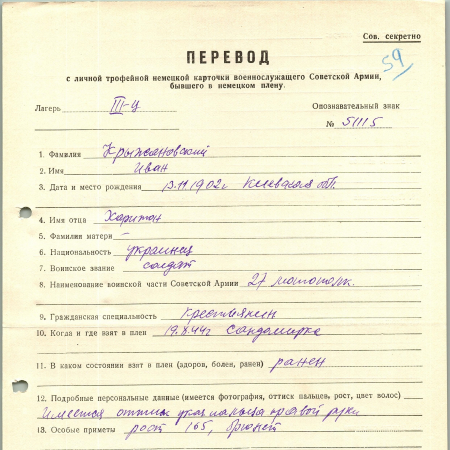 Сов. секретно
59
ПЕРЕВОД
с личной трофейной немецкой карточки военнослужащего Советской Армии,
бывшего в немецком плену.
Лагерь III-Ц
Опознавательный знак
№ 51115
1. Фамилия Крыжановский
2. Имя Иван
3. Дата и место рождения 13.11.1902г Киевская обл.
4. Имя отца Харитон
5. Фамилия матери –
6. Национальность украинец
7. Воинское звание солдат
8. Наименование воинской части Советской Армии 27
9. Гражданская специальность Крестьянин
10. Когда и где взят в плен 19.8.44г Сандомирка
11. В каком состоянии взят в плен (здоров, болен, ранен) ранен
12. Подробные персональные данные (имеется фотография, оттиск пальцев, рост, цвет волос)
Имеется оттиск указ пальца правой руки
13. Особые приметы рост 165, брюнет